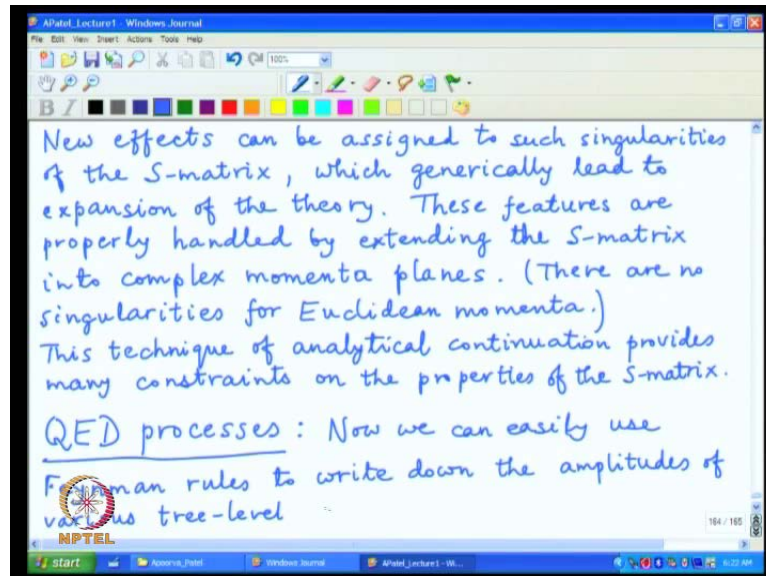 APatel_Lecture1 - Windows Journal
File Edit View Insert Actions Tools Help
100%
B I
New effects can be assigned to such singularities
of the S-matrix, which generically lead to
expansion of the theory. These features are
properly handled by extending the S-matrix
into complex momenta planes. (There are no
singularities for Euclidean momenta.)
This technique of analytical continuation provides
many constraints on the properties of the S-matrix.
QED processes : Now we can easily use
Feynman rules to write down the amplitudes of
various tree-level
NPTEL
164 / 165
start Apoorva_Patel Windows Journal APatel_Lecture1 - Wi... 6:22 AM